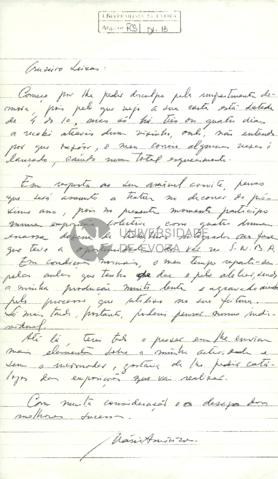 UNIVERSIDADE DE ÉVORA
Cruzeiro Seixas:
Começo por lhe pedir desculpa pela impertinente de-
mora, pois pelo que vejo a sua carta está datada
de 4 de 10, mas só há três ou quatro dias
a recebi através duma vizinha, onde, não entendo
por que razão, o meu correio algumas vezes é
lançado, caindo num total esquecimento.
Em resposta ao seu amável convite, penso
que será assunto a tratar no decorrer do pró-
ximo ano, pois no presente momento participo
numa exposição colectiva com quatro
que teve a na S.N.B.A.
Em condições normais, o meu tempo reparte-se
pelas aulas que tenho que dar e pelo atelier, sendo
a minha produção muito lenta e agravada ainda
pelo processo que utilizo na sua feitura.
Lá mais tarde, portanto, podemos pensar numa indi-
vidual.
Até lá, terei todo o prazer em lhe enviar
mais elementos sobre a minha actividade e
sem o incomodar, gostaria de lhe pedir catá-
logos das exposições que vai realizar.
Com muita consideração e o desejo dos
melhores sucessos
UNIVERSIDADE
DE ÉVORA